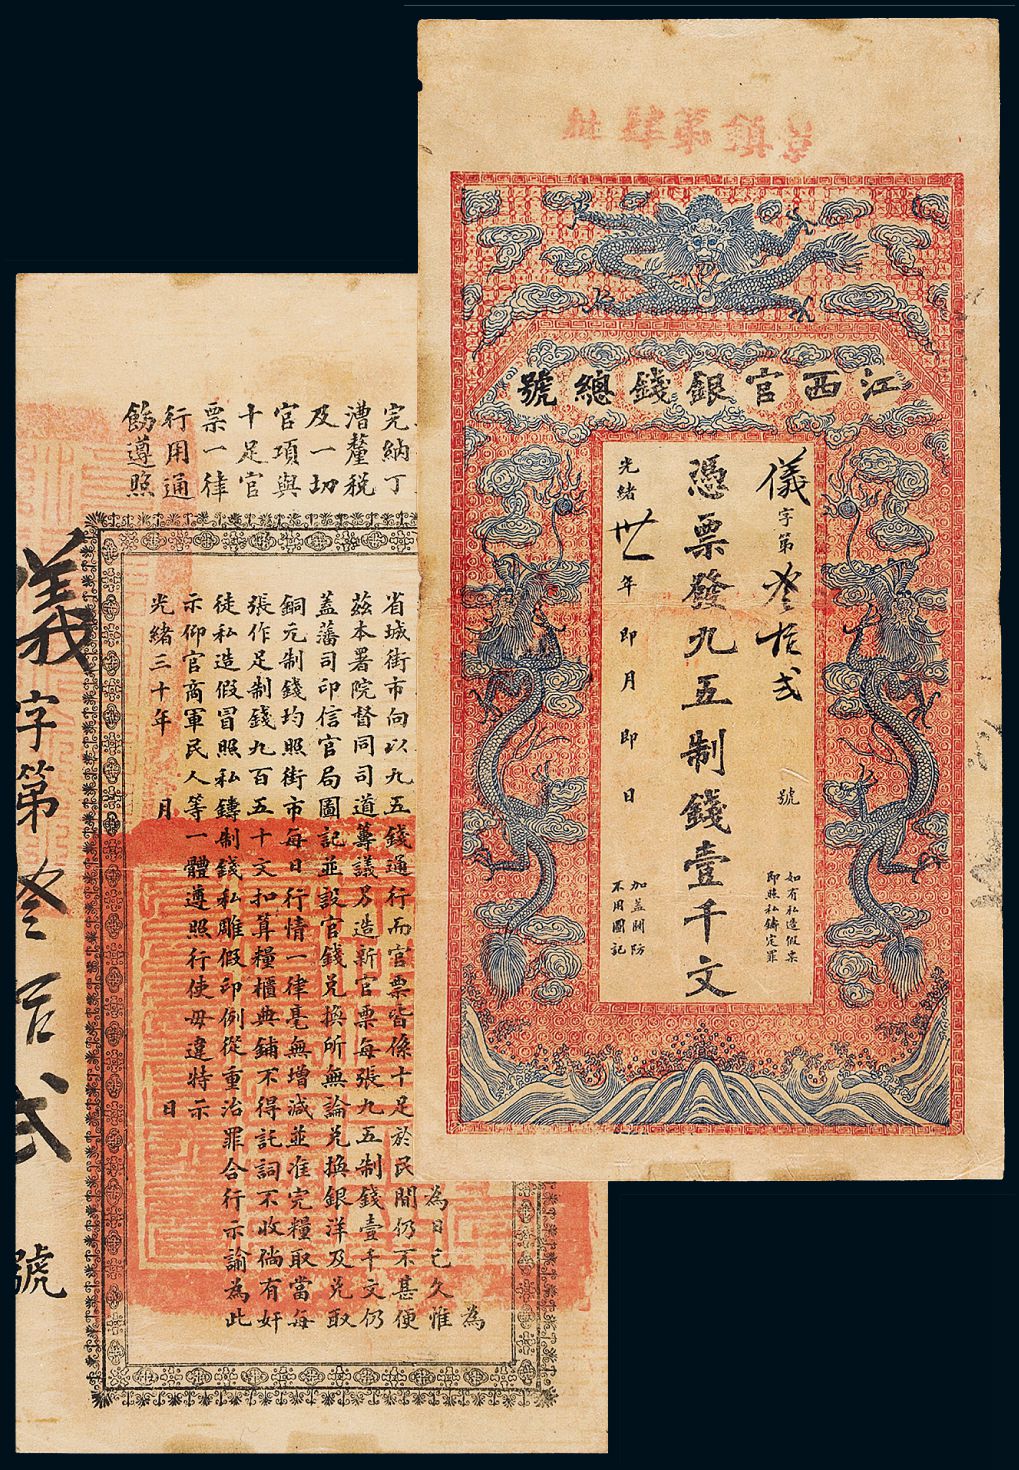 景鎮第肆拙
江西官銀錢總號
儀字第叁拾弍號
如有私造假票
即照私鑄定罪
憑票發九五制錢壹千文
光緒卅一年即月即日
加蓋關防
不用圖記
完納丁
漕釐税
及一切
官項與
十足官
票一律
行用通
飭遵照
為
為日已久惟
省城街市向以九五錢通行而官票皆係十足於民間仍不甚便
茲本署院督同司道籌議另造新官票每張九五制錢壹千文仍
蓋藩司印信官局圖記並設官錢兑換所無論兑換銀洋及兑取
銅元制錢均照街市每日行情一律毫無增減並准完糧取當每
張作足制錢九百五十文扣算糧櫃典鋪不得託詞不收倘有奸
徒私造假冒照私鑄制錢私雕假印例從重治罪合行示諭為此
示仰官商軍民人等一體遵照行使毋違特示
光緒三十年 月 日
儀字第叁拾弍號